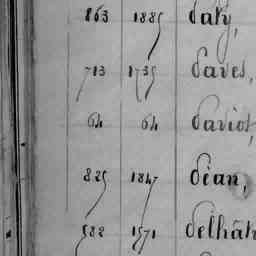 863 1885 Daty,
713 1735 Daves,
64 64 Daviot,
825 1847 Déan,
582 1571 Delhât